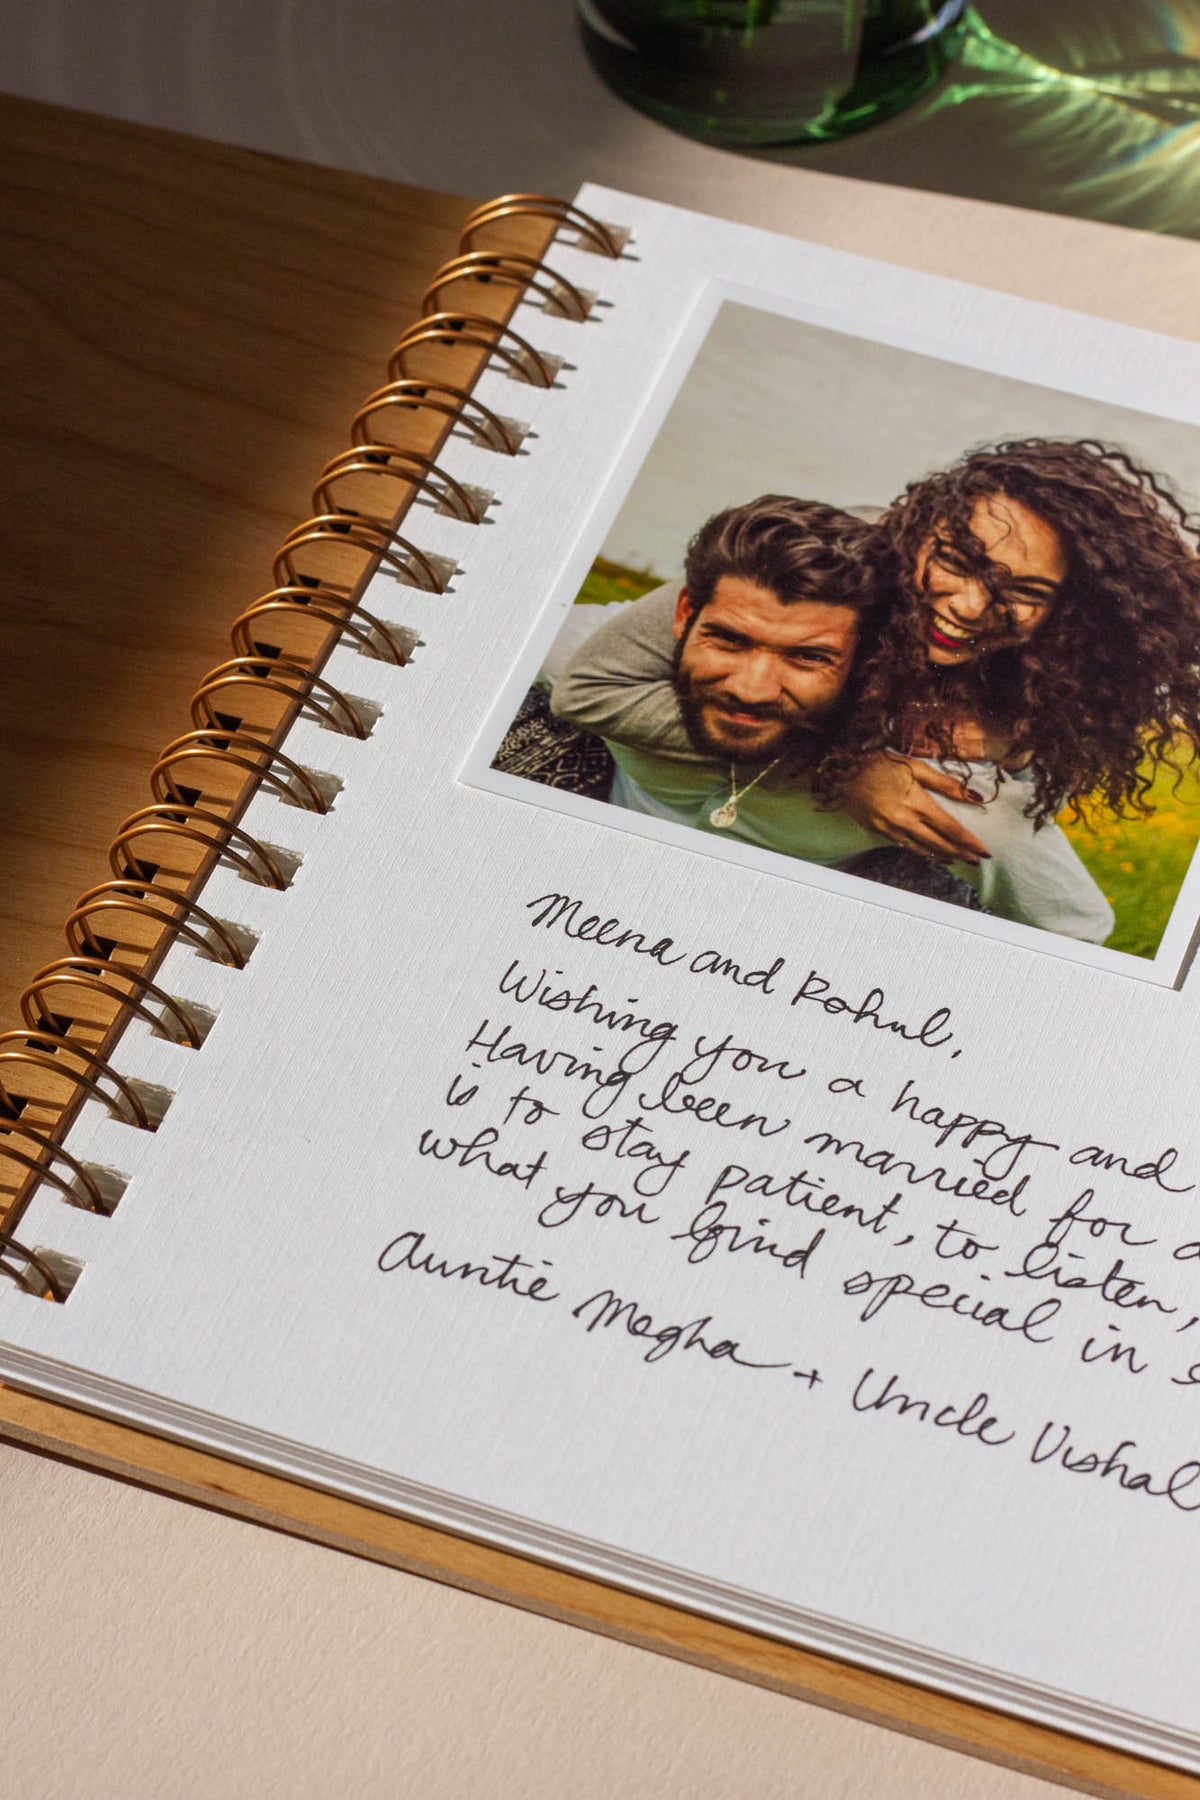 Meena and Rohul,
Wishing you a happy and
Having been married for a
is to stay patient, to listen,
what you find special in
Auntie Megha + Uncle Vishal